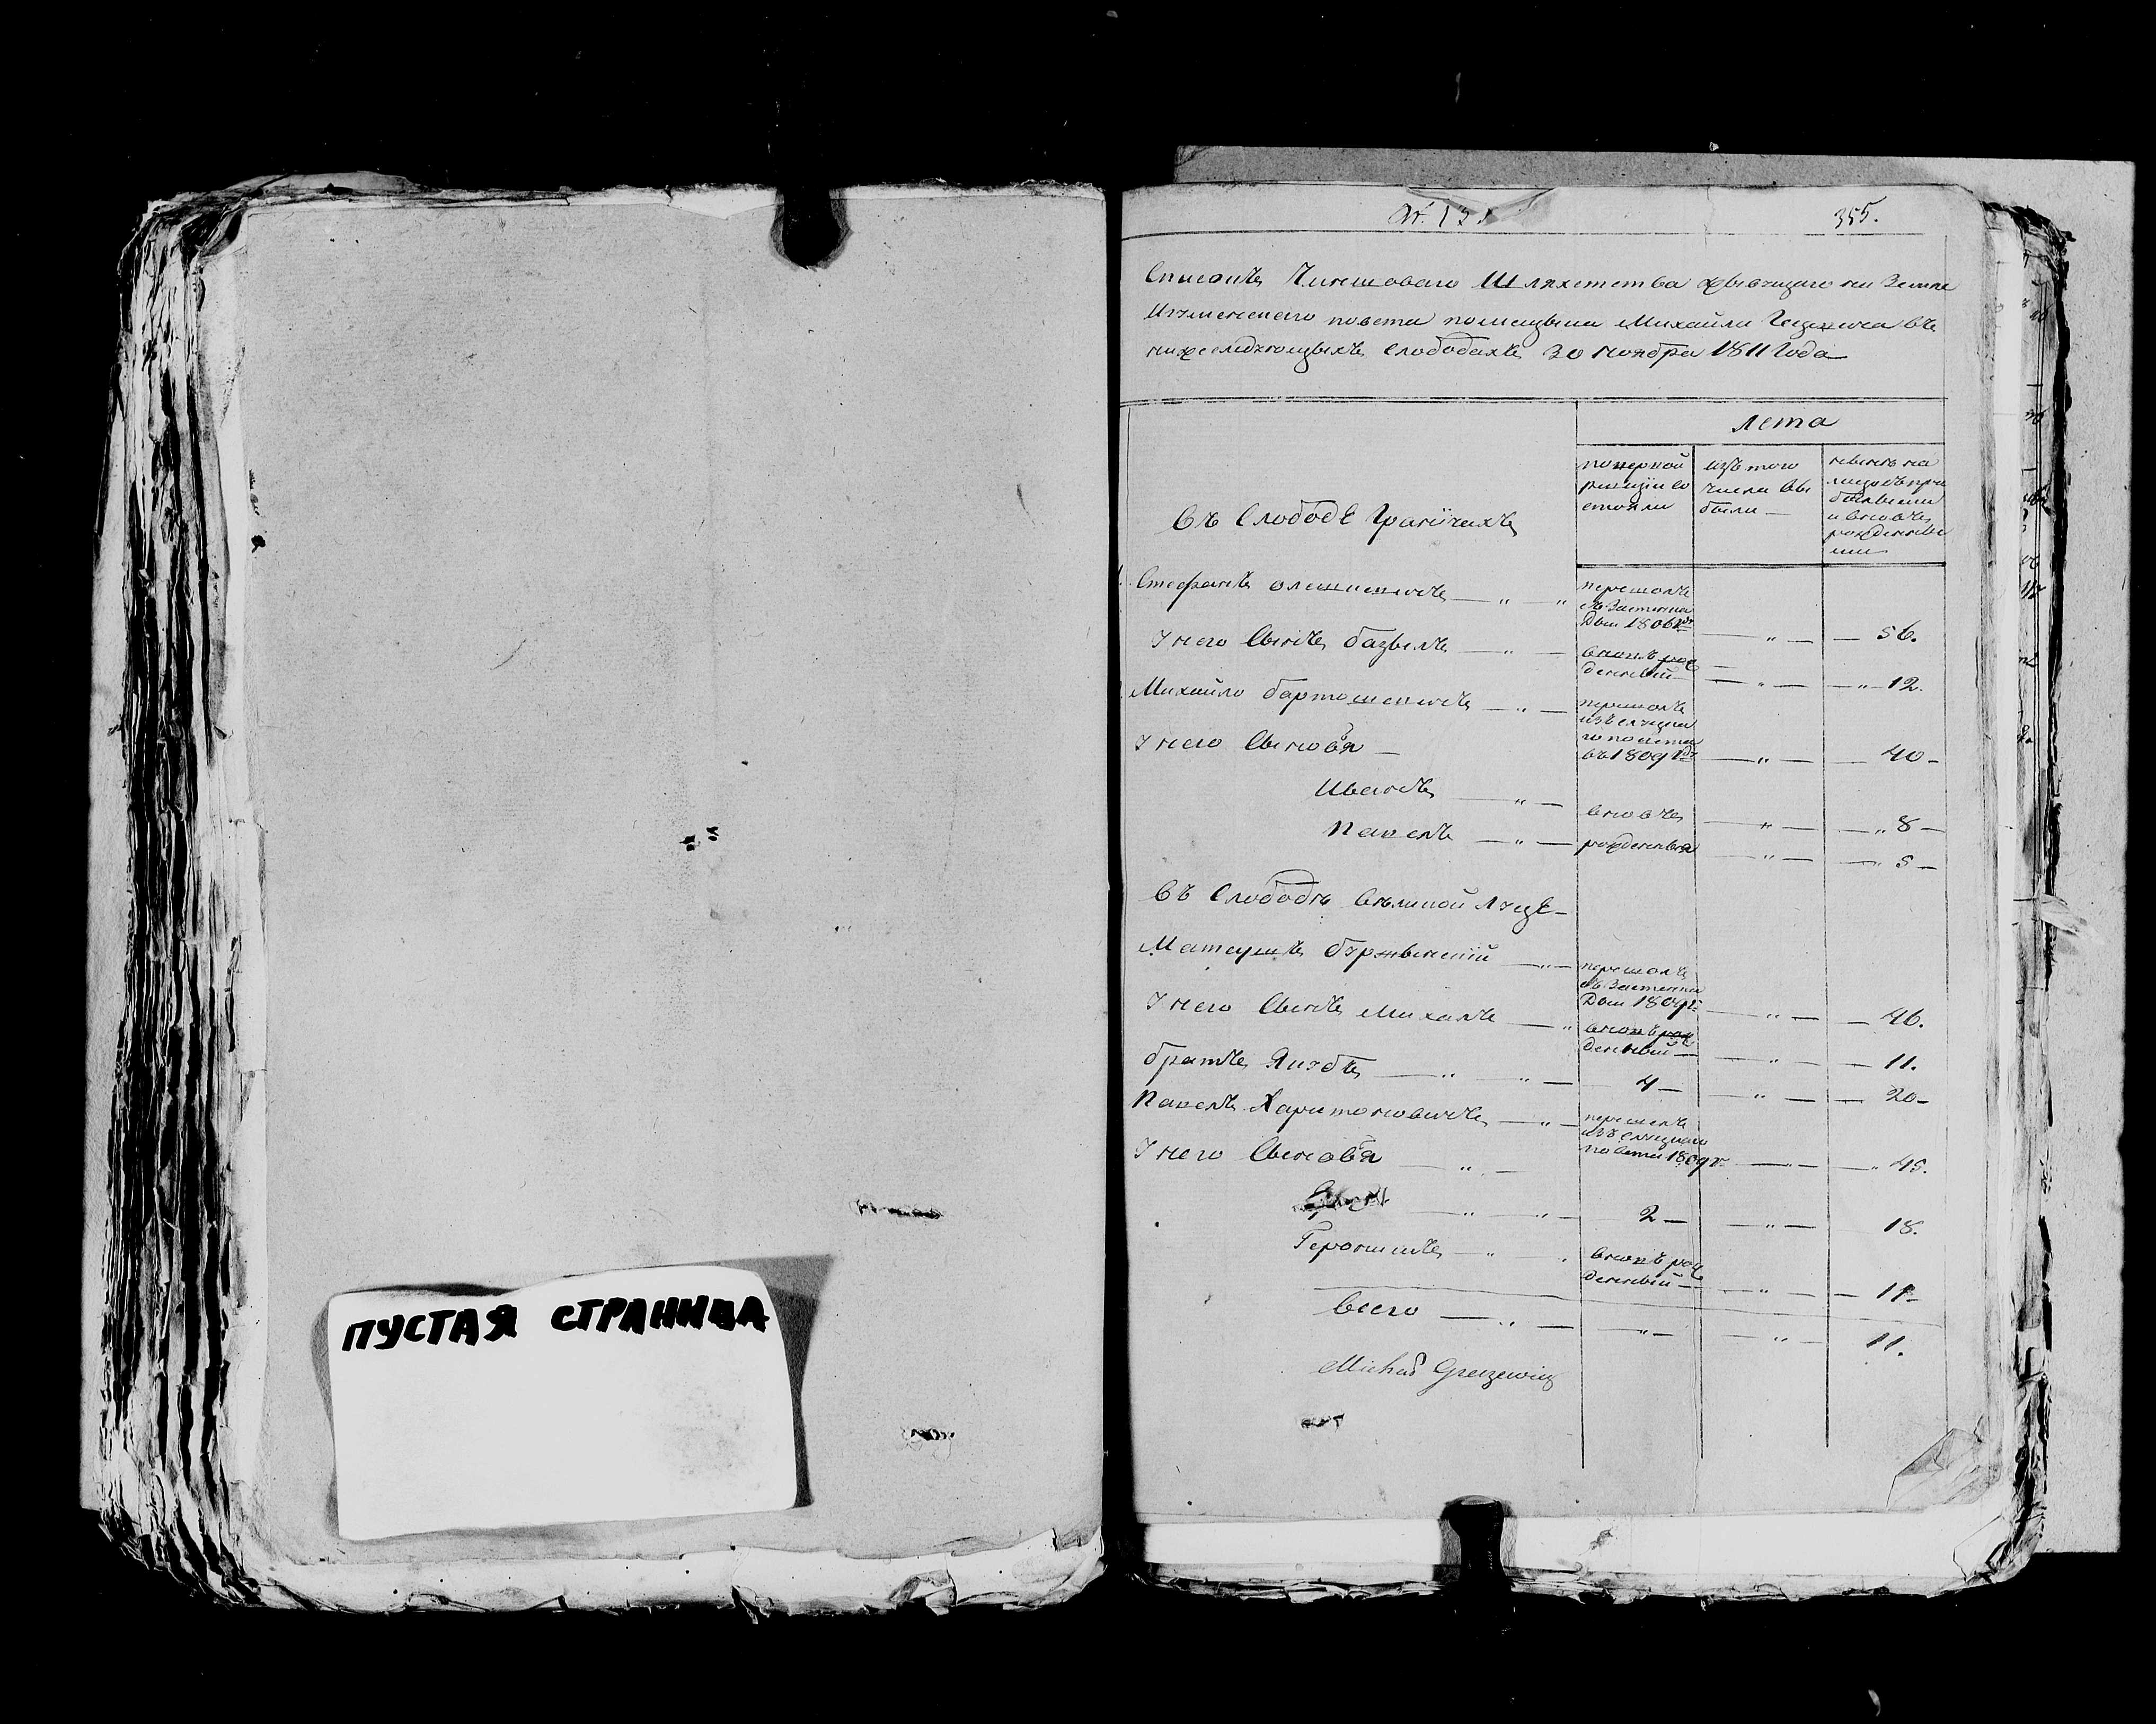 ПУСТАЯ СТРАНИЦА
355.
Списокъ Чиншоваго Шляхетства живущаго на Земле
Игуменскаго повета помещыка Михайлы в
нижеследующыхъ слободахъ 30 ноября 1811 Года
Лета
по перпой ревизіи состояли
изъ того числа выбыли —
ныне на лицо съ прибылыми и вновь рожденныеми
Въ Слободе Граничахъ
Стефанъ Олешкевичъ — " — " перешолъ съ Застенка 1806 — " — — 56.
У него Сынъ Базылъ — " — вновь рожденный — " — — " — 12.
Михайло Бартошевичъ — " — перешолъ изъ Слуцкаго повета въ 1809 — " — — 40 —
У него Сыновя —
Иванъ — " — вновь — " — — " 8 —
Павелъ — " — рожденныя — " — — " 5 —
Въ Слободе Лузе —
Матеушъ — " — перешолъ съ Застенка 1809 — " — — 46.
У него Сынъ Михалъ — " вновь рожденный — — " — — 11.
братъ Якубъ — " — " — 4 — — " — — 20 —
Павелъ Харитоновичъ — " — перешелъ изъ Слуцкаго повета 1809 г. — " — — " 45.
У него Сыновя — " —
— " — " — 2 — — " — 18.
Геронимъ — " — " вновь рожденный — — " — — 11 —
Всего — " — — " — — " — 11.
Michał